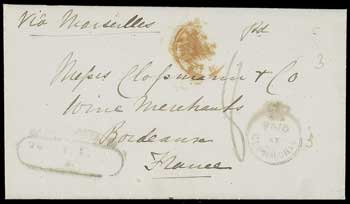 Via Marseilles
pd
3
Messrs Clossmann & Co
Wine Merchants
Bordeaux
France
PAID
AT
3